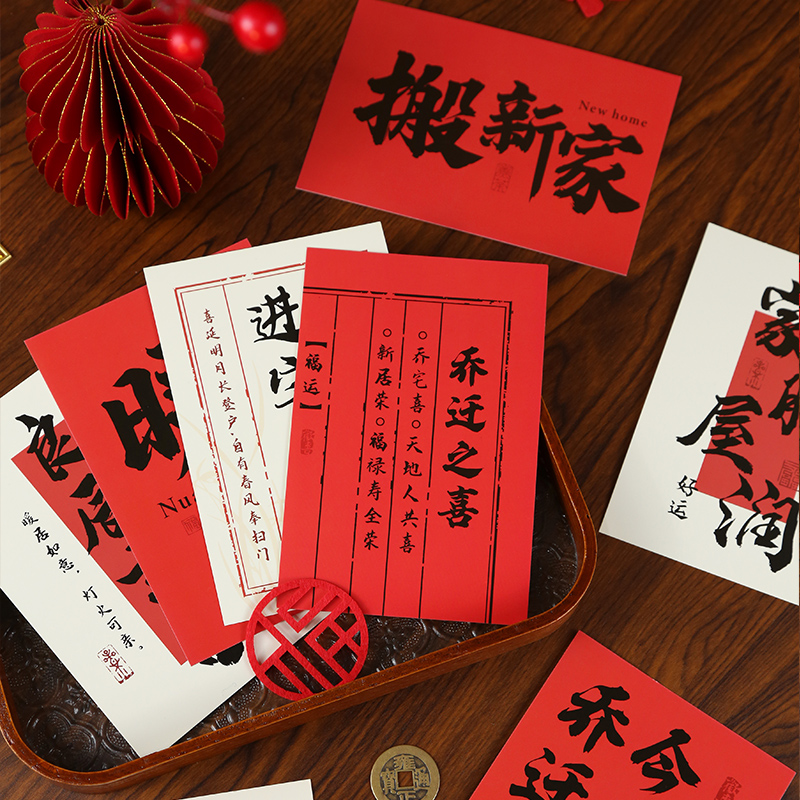 搬新家
New home
乔迁之喜
○乔宅喜○天地人共喜
○新居荣○福禄寿全荣
【福运】
进
宅
喜延明月长登户·自有春风奉扫门
暖
Nu
良辰
暖居如意，灯火可亲。
家肥
屋润
好运
今
乔迁
雍正通寶